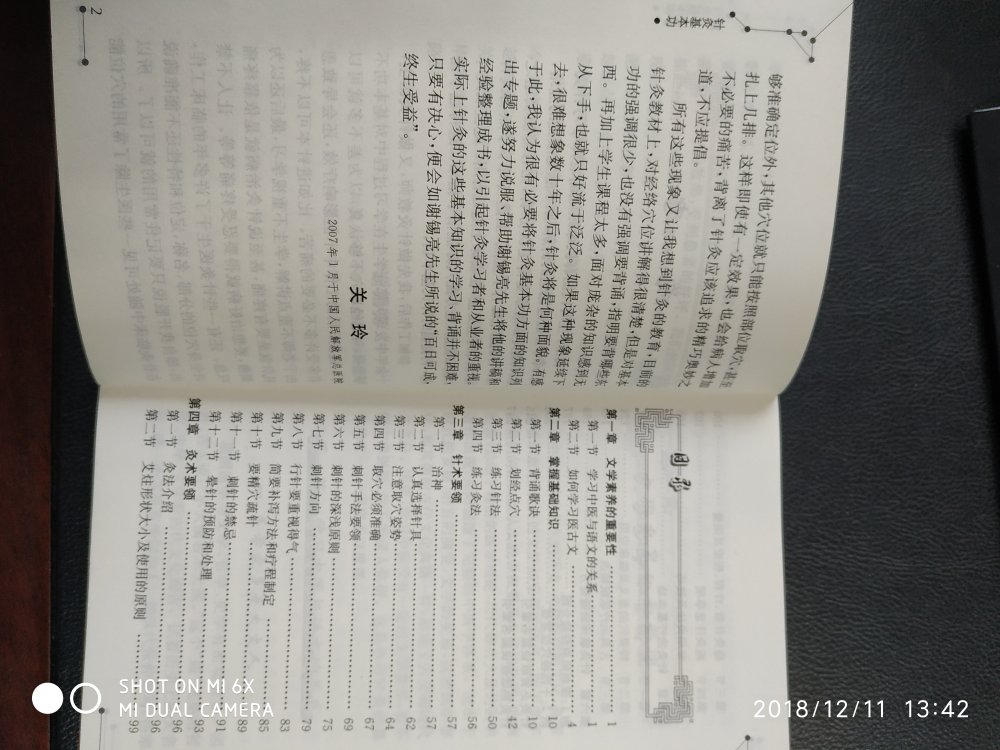 针灸基本功
够准确定位外，其他穴位就只能按照部位取穴，甚至
扎上几排。这样即使有一定效果，也会给病人增加
不必要的痛苦，背离了针灸应该追求的精巧奥妙之
道，不应提倡。
所有这些现象又让我想到针灸的教育，目前的
针灸教材上，对经络穴位讲解得很清楚，但是对基本
功的强调很少，也没有强调要背诵、指明要背哪些东
西。再加上学生课程太多，面对庞杂的知识感到无
从下手，也就只好流于泛泛。如果这种现象延续下
去，很难想象数十年之后，针灸将是何种面貌。有感
于此，我认为很有必要将针灸基本功方面的知识列
出专题，遂努力说服、帮助谢锡亮先生将他的讲稿和
经验整理成书，以引起针灸学习者和从业者的重视。
实际上针灸的这些基本知识的学习、背诵并不困难，
只要有决心，便会如谢锡亮先生所说的“百日可成，
终生受益”。
关 玲
2007年1月于中国人民解放军总医院
2
目录
第一章 文学素养的重要性 1
第一节 学习中医与语文的关系 1
第二节 如何学习医古文 4
第二章 掌握基础知识 10
第一节 背诵歌诀 10
第二节 划经点穴 42
第三节 练习针法 50
第四节 练习灸法 56
第三章 针术要领 57
第一节 治神 57
第二节 认真选择针具 62
第三节 注意取穴姿势 64
第四节 取穴必须准确 67
第五节 刺针手法要领 69
第六节 刺针的深浅原则 75
第七节 刺针方向 79
第八节 行针要重视得气 83
第九节 简要补泻方法和疗程制定 85
第十节 要精穴疏针 89
第十一节 刺针的禁忌 91
第十二节 晕针的预防和处理 93
第四章 灸术要领 96
第一节 灸法介绍 96
第二节 艾炷形状大小及使用的原则 99
SHOT ON MI 6X
MI DUAL CAMERA
2018/12/11 13:42